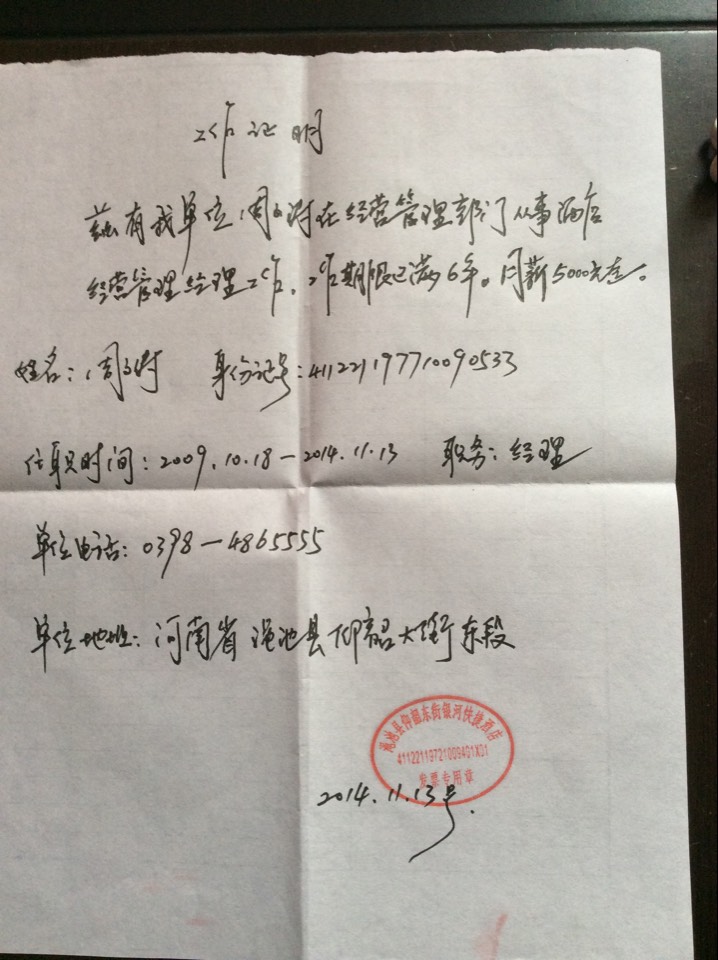 工作证明
兹有我单位周 涛在经营管理部门从事酒店
经营管理经理工作，工作期限已满6年。月薪5000元.
姓名：周 涛 身份证号：411221197710090533
任职时间：2009.10.18—2014.11.13 职务：经理
单位电话：0398—4865555
单位地址：河南省渑池县仰韶大街东段
渑池县仰韶东街银河快捷酒店
41122119721009401X01
发票专用章
2014.11.13号.